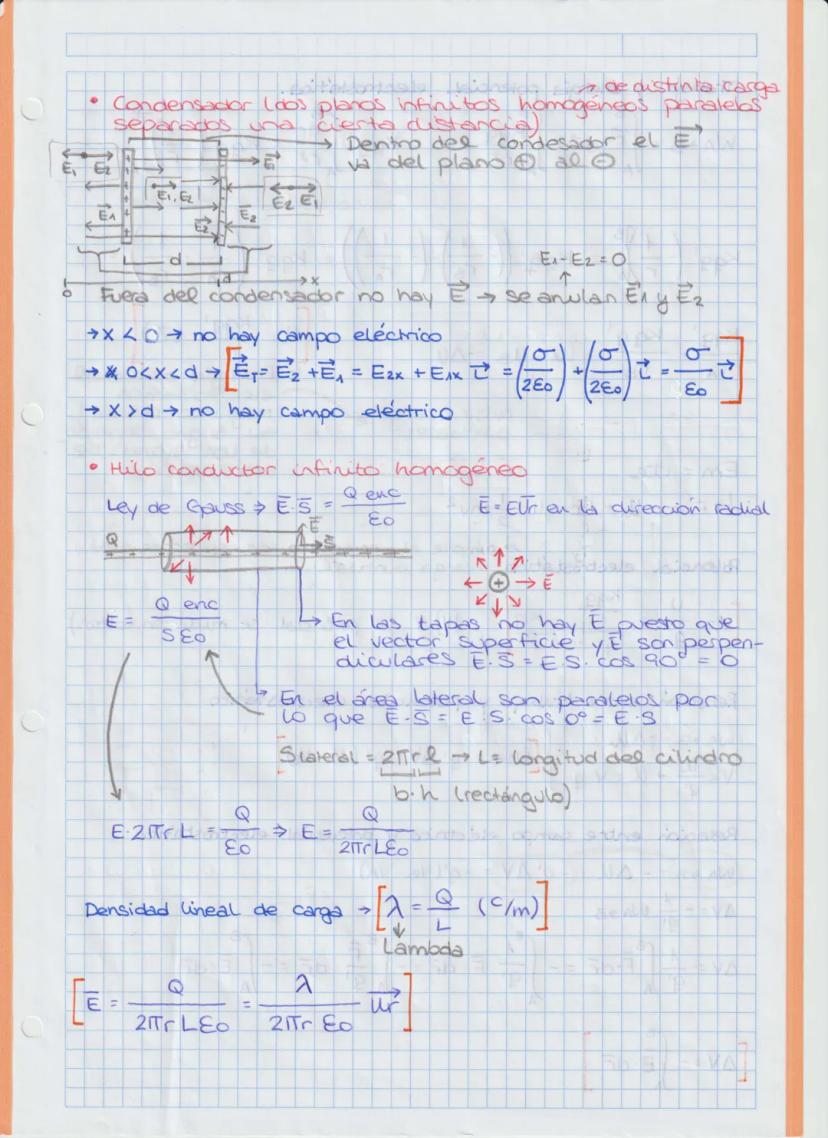 → de distinta carga
• Condensador (dos planos infinitos homogéneos paralelos
separados una cierta distancia)
→ Dentro del condesador el E⃗
va del plano ⊕ al ⊖
E₁ E₂
E⃗₁
E₁, E₂
E₂ E⃗₁
E⃗1
E⃗₂
E₂
d
d
0 x
E1-E2=0
Fuera del condensador no hay E⃗ → se anulan E⃗1 y E⃗2
→ x < 0 → no hay campo eléctrico
→ 0<x<d → [E⃗T = E⃗2 + E⃗1 = E2x + E1x i⃗ = (σ/2εo) + (σ/2εo) i⃗ = σ/εo i⃗]
→ x>d → no hay campo eléctrico
• Hilo conductor infinito homogéneo
Ley de Gauss ⇒ E̅·S̅ = Q enc/εo E̅=EU̅r en la dirección radial
Q
E̅
S̅
+ E̅
E = Q enc/Sεo
→ En las tapas no hay E̅ puesto que
el vector superficie y E̅ son perpen-
diculares E̅·S̅ = E·S·cos 90º = 0
→ En el área lateral son paralelos por
lo que E̅·S̅ = E·S·cos 0º = E·S
Slateral = 2πrl → L≡ longitud del cilindro
b·h (rectángulo)
E·2πrL = Q/εo ⇒ E = Q/2πrLεo
Densidad lineal de carga → [λ = Q/L (C/m)]
Lambda
[E̅ = Q/2πrLεo = λ/2πrεo u⃗r]